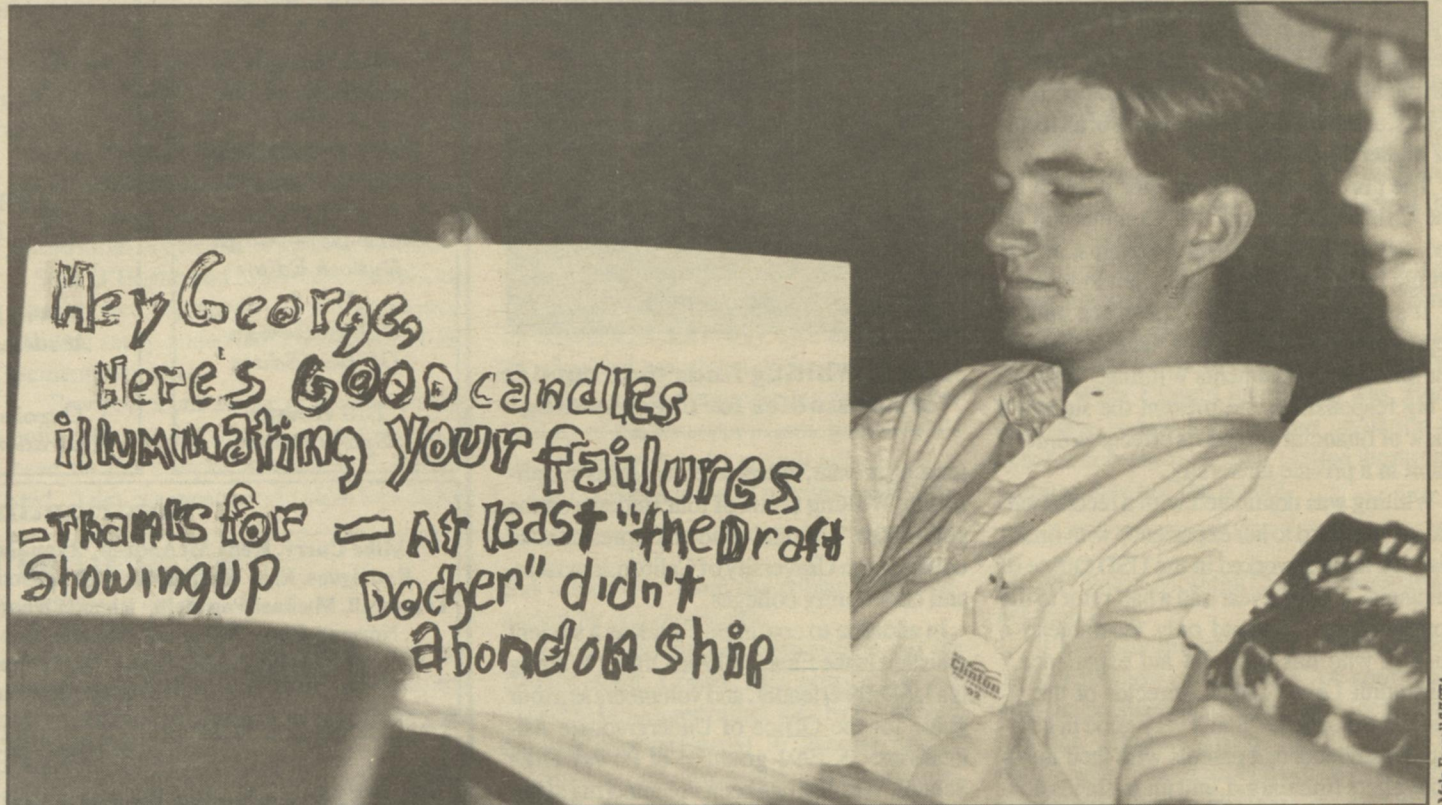 Hey George,
Here's GOOD candles
illuminating your failures
-Thanks for
Showing up
— At least "the Draft
Docher" didn't
abondon ship
Clinton
'92